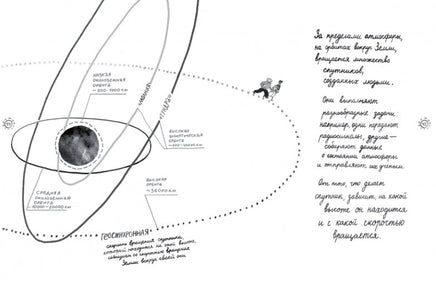 За пределами атмосферы,
на орбитах вокруг Земли,
вращается множество
спутников,
созданных людьми.
Они выполняют
разнообразные задачи:
например, одни передают
радиосигналы, другие —
собирают данные
о состоянии атмосферы
и отправляют их ученым.
От того, что делает
спутник, зависит, на какой
высоте он находится
и с какой скоростью
вращается.
НИЗКАЯ
ОКОЛОЗЕМНАЯ
ОРБИТА
«МОЛНИЯ»
«ТУНДРА»
ВЫСОКАЯ
ЭЛЛИПТИЧЕСКАЯ
ОРБИТА
СРЕДНЯЯ
ОКОЛОЗЕМНАЯ
ОРБИТА
ВЫСОКАЯ
ОРБИТА
ГЕОСИНХРОННАЯ
скорость вращения спутника,
который находится на этой высоте,
совпадает со скоростью вращения
Земли вокруг своей оси